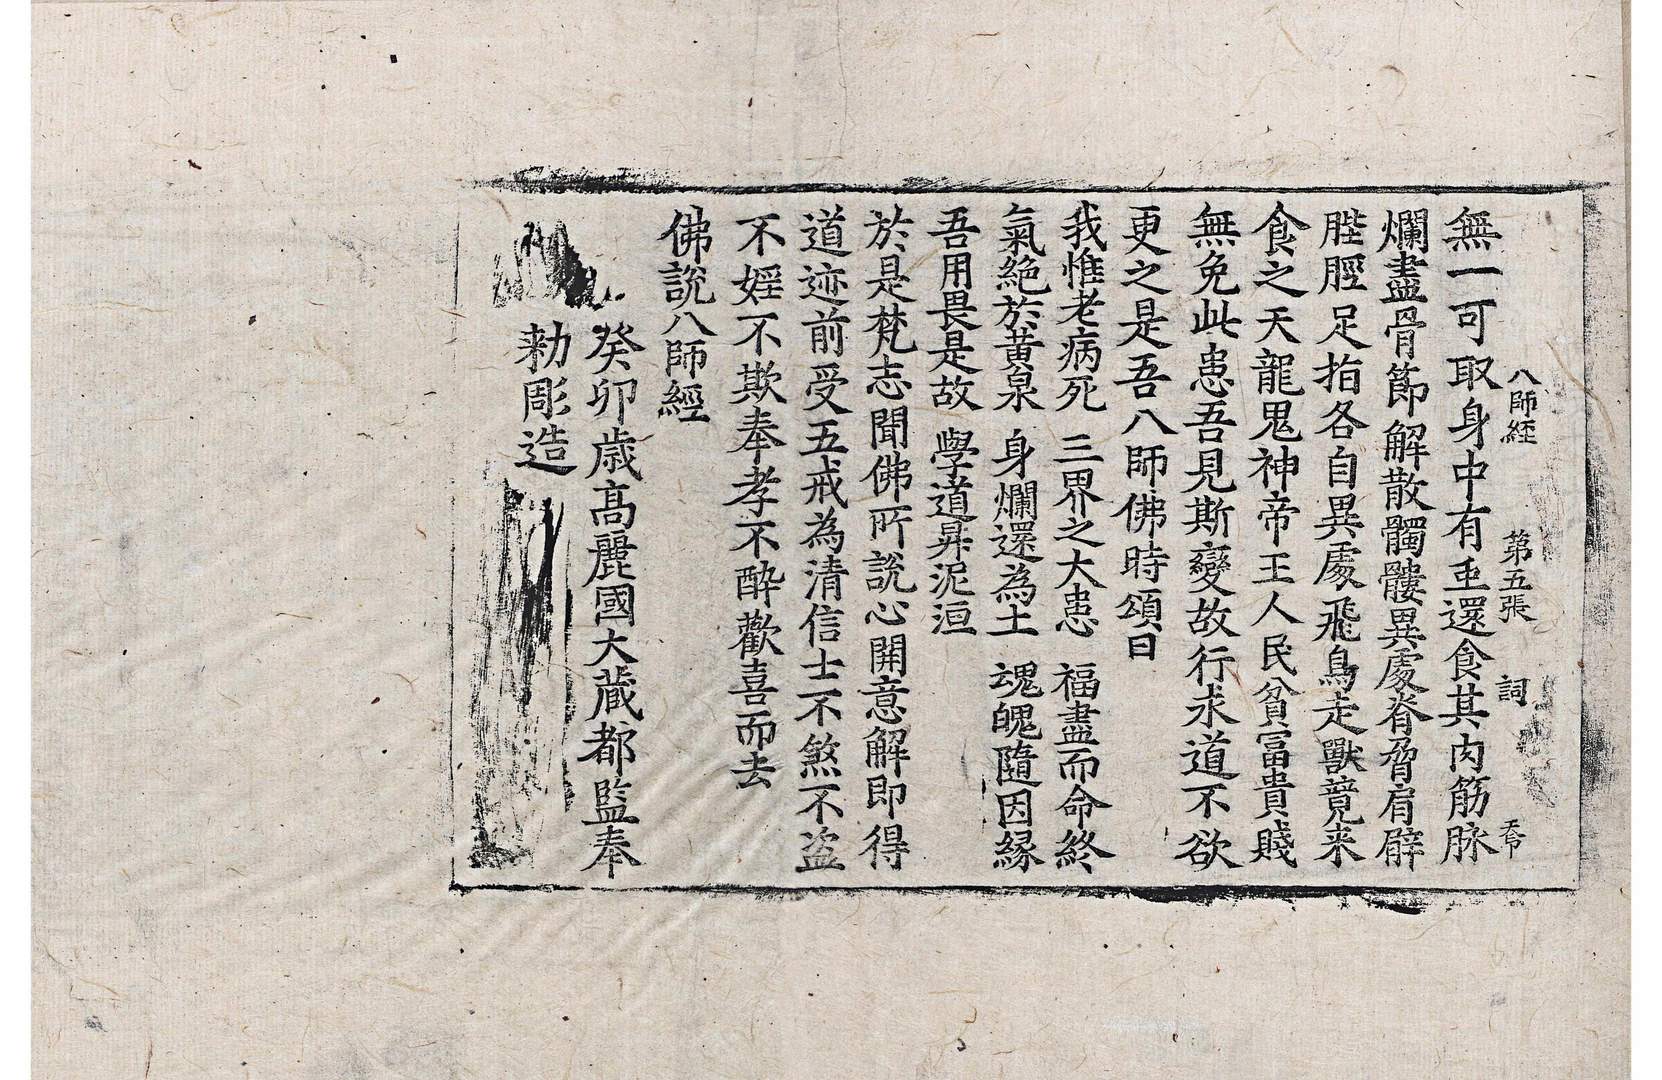 八師經　第五張　詞
無一可取身中有䖝還食其肉筋脉
爛盡骨節解散髑髏異處脊脅肩臂
䏶脛足指各自異處飛鳥走獸競来
食之天龍鬼神帝王人民貧富貴賤
無免此患吾見斯變故行求道不欲
更之是吾八師佛時頌曰
我惟老病死　三界之大患　福盡而命終
氣絕於黃泉　身爛還為土　魂魄隨因緣
吾用畏是故　學道昇泥洹
於是梵志聞佛所說心開意解即得
道迹前受五戒為清信士不煞不盜
不婬不欺奉孝不醉歡喜而去
佛說八師經
癸卯歲高麗國大藏都監奉
勑彫造